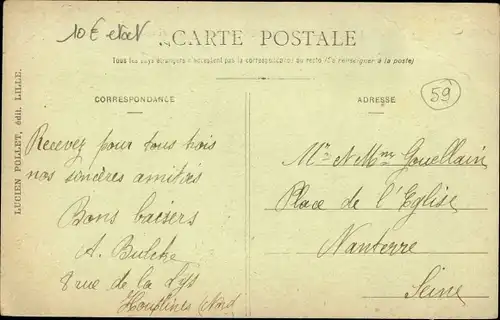 10€ etat
CARTE POSTALE
Tous les pays étrangers n'acceptent pas la correspondance au recto (Se renseigner à la poste)
59
LUCIEN POLLET, édit. LILLE.
CORRESPONDANCE
Recevez pour tous trois
nos sincères amitiés
Bons baisers
A. Bulcke
8 rue de la Lys
Houplines Nord
ADRESSE
Mr & Mme Gouellain
Place de l'Eglise
Nanterre
Seine